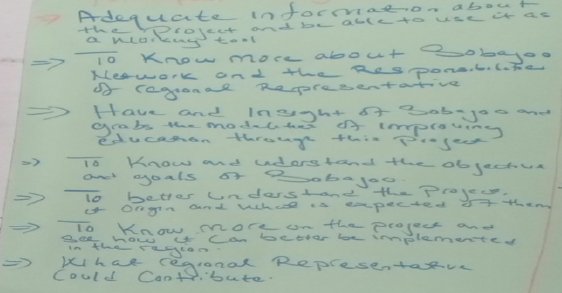 Adequate information about
the Project and be able to use it as
a working tool
=> To Know more about Sobajoo
Network and the Responsibilities
of regional Representative
=> Have and Insight of Sobajoo and
grabs the modalities of improving
education through this Project
=> To Know and uderstand the objective
and goals of Sobajoo.
=> To better understand the Project,
it origin and what is expected of them
=> To Know more on the project and
see how it can better be implemented
in the region.
=> What regional Representative
Could Contribute.